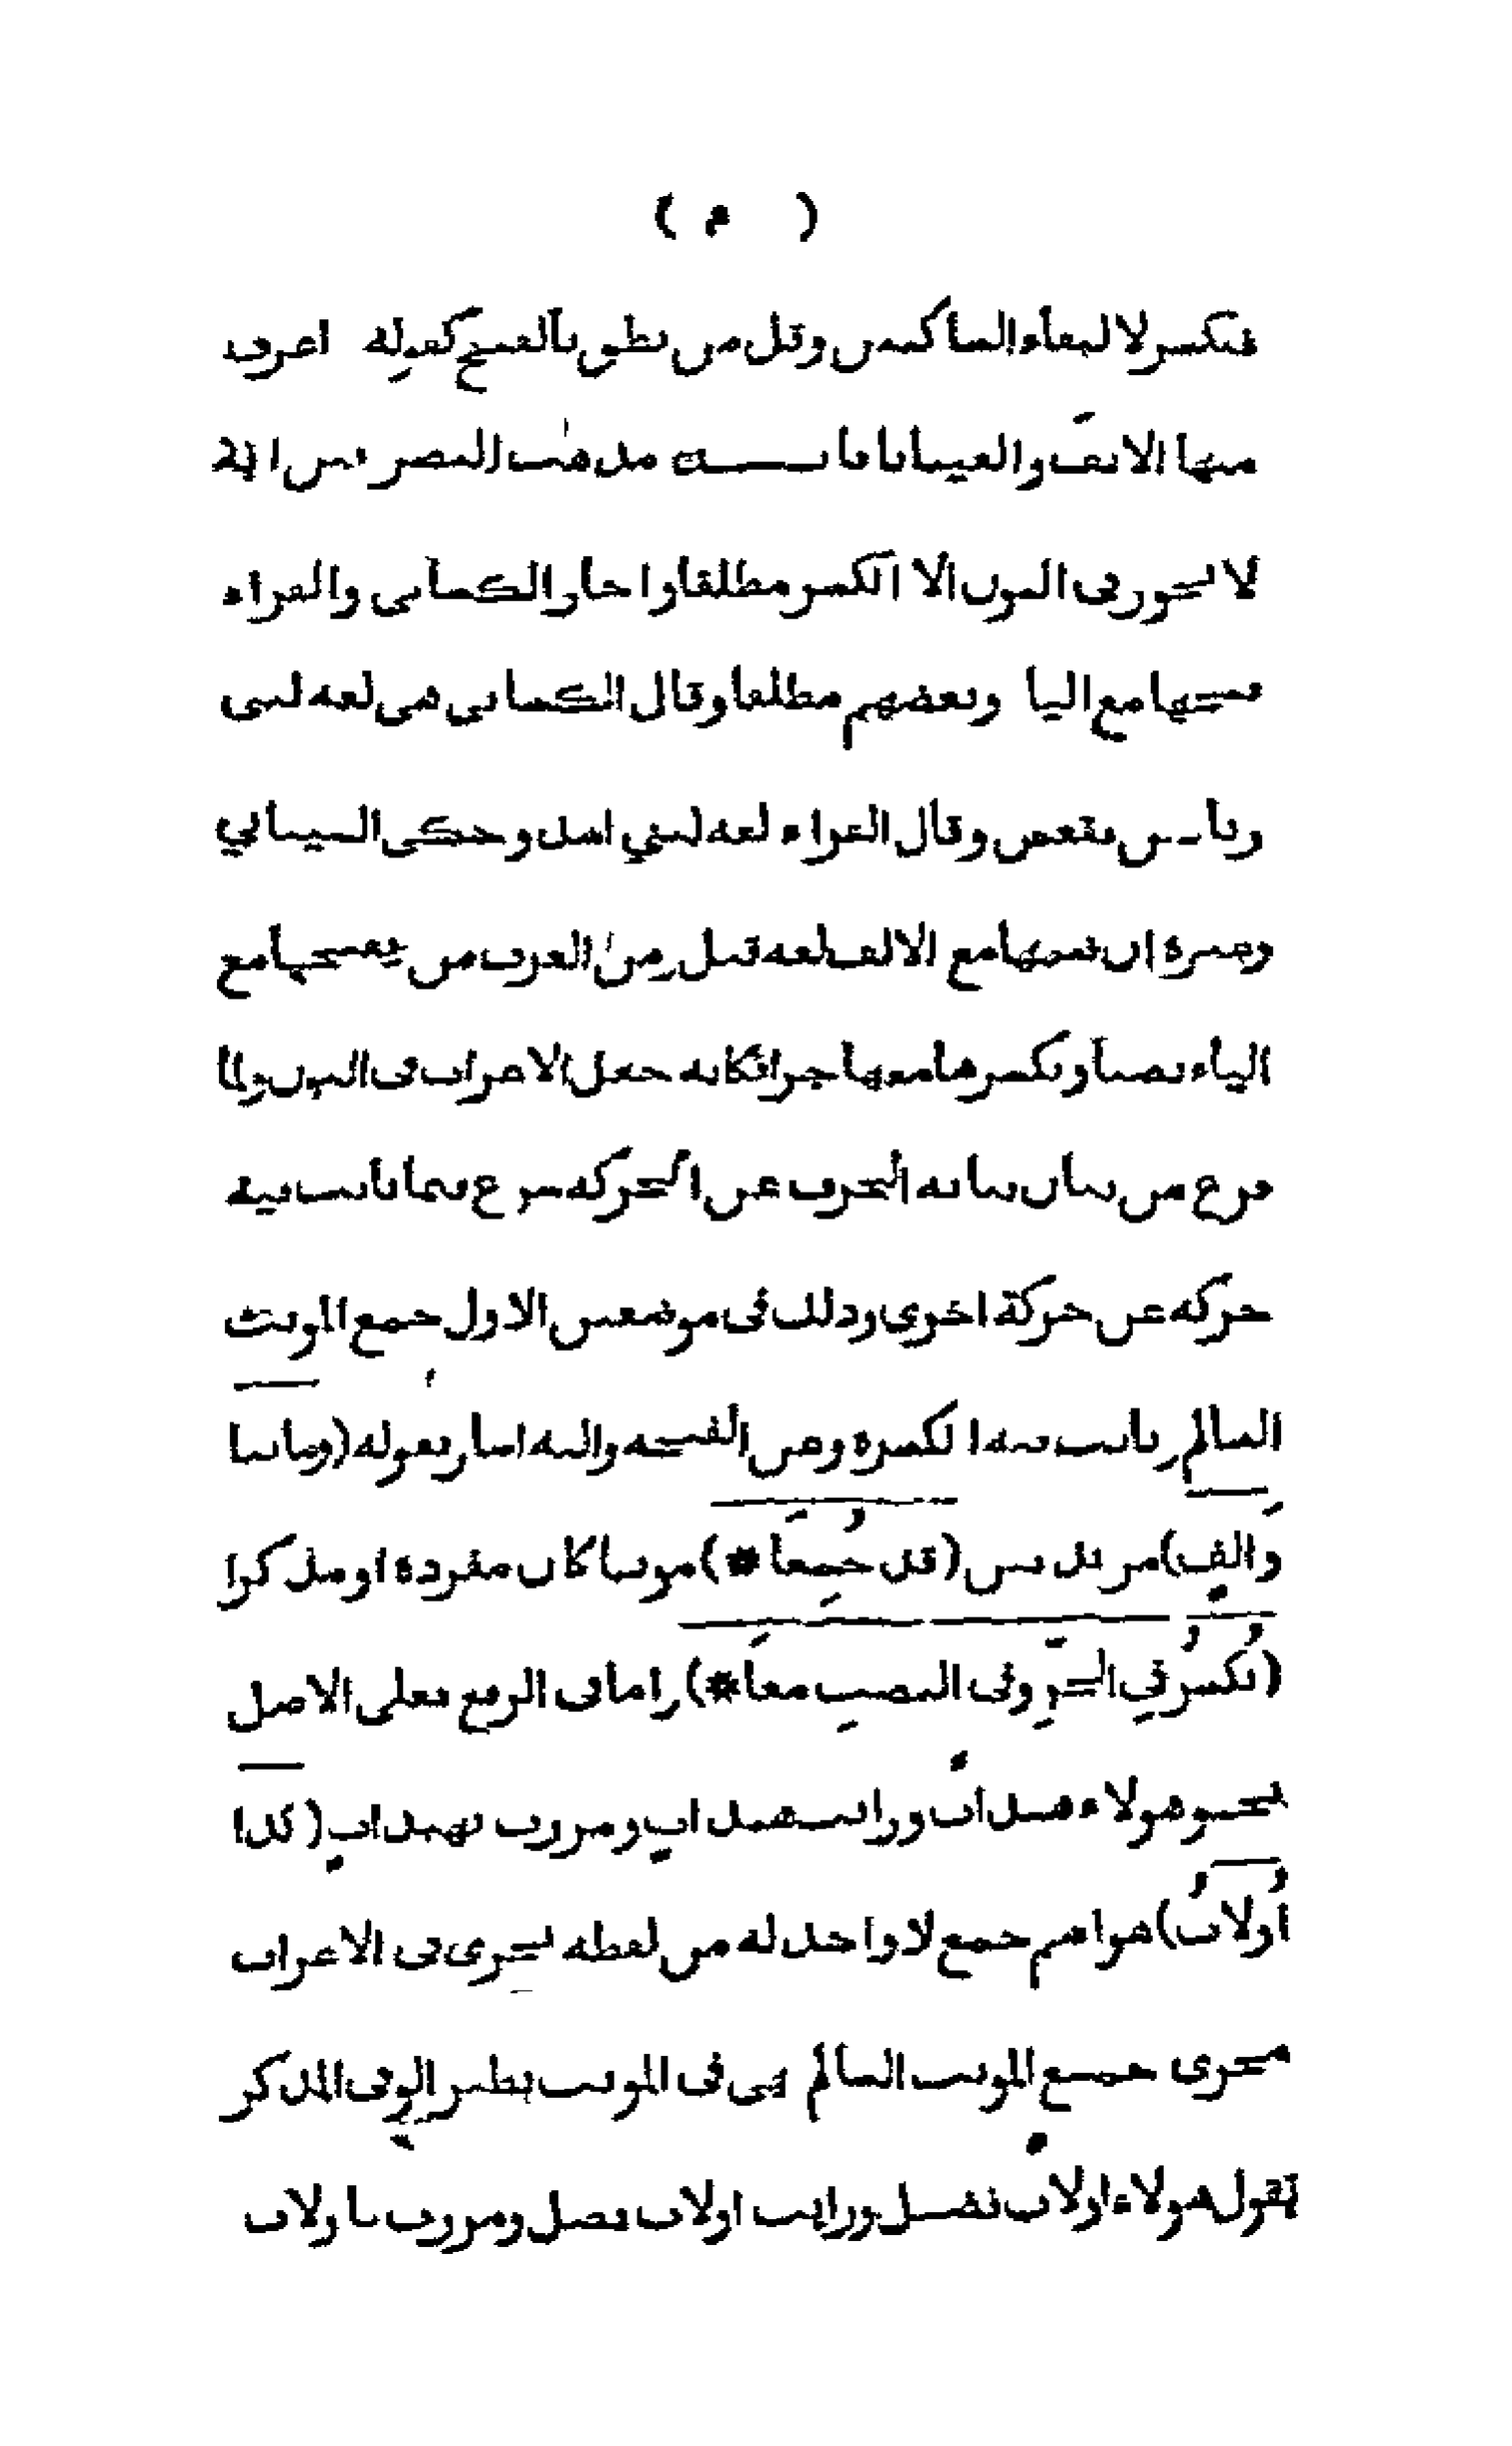 ( م )
فتكسر لالتقاء الساكنين وقل من نطق بالفتح كقوله اعرف
منها الانف والعينانا فائدة مذهب البصريين انه
لا يجوز في النون الا الكسر مطلقا واجاز الكسائي والفراء
فتحها مع اليا وبعضهم مطلقا وقال الكسائي هي لغه لبني
وقال الفراء لغه لبني اسد وحكى الشيباني
وغيره ان فتحها مع الالف لغه قيل ومن العرب من يفتحها مع
الياء نصبا ويكسرها معها جرا فكانه جعل الاعراب في النون ولما
فرغ من بيان نيابه الحرف عن الحركه شرع فيما نابت فيه
حركه عن حركة اخرى وذلك في موضعين الاول جمع المونث
السالم نابت فيه الكسرة وعن الفتحه واليه اشار بقوله (وما بتا
والفٍ) مزيدتين (قد جُمِعَا *) مونثا كان مفرده او مذكرا
(يكسرُ في الجرِّ وفي النصبِ معَا *) واما في الرفع فعلى الاصل
نحو هولاء هندات ورايت هندات ومررت بهندات (كذا
اُولاتُ) هو اسم جمع لا واحد له من لفظه يجرى في الاعراب
مجرى جمع المونث السالم هي في المونث نظير الوفي المذكر
تقول هولاء اولات فضل ورايت اولات فضل ومررت باولات